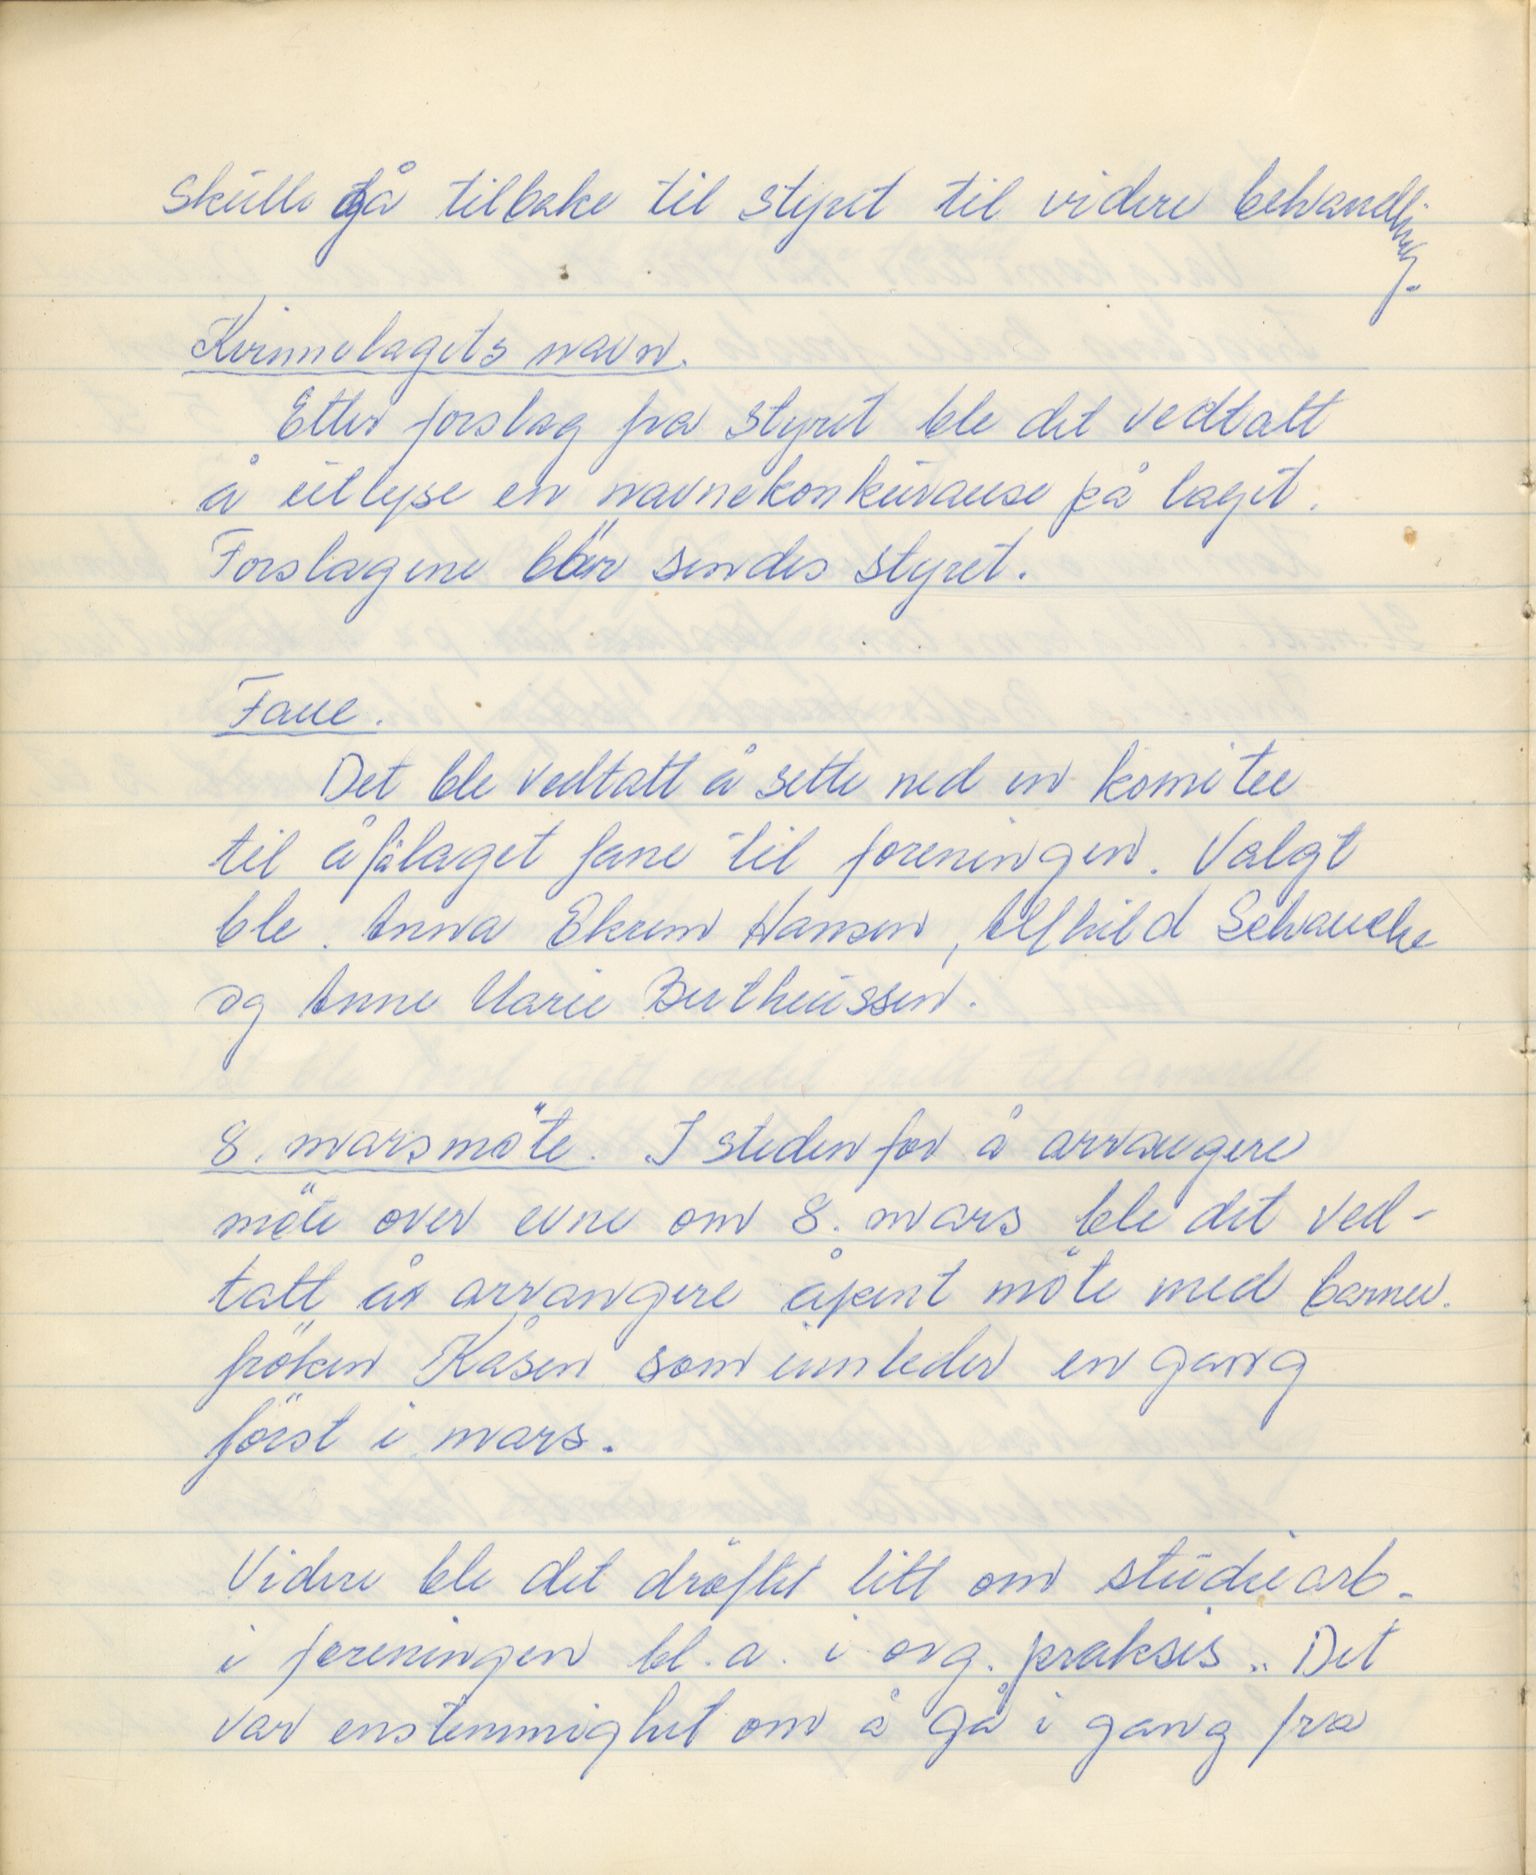 Skulle gå tilbake til styret til videre behandling.
Kvinnelagets navn.
Etter forslag fra styret ble det vedtatt
å utlyse en navnekonkuranse på laget.
Forslagene bör sendes styret.
Fane.
Det ble vedtatt å sette ned en komitee
til å få laget fane til foreningen. Valgt
ble. Anna Ekrem Hansen, Alfhild Schancke
og Anne Marie Bertheussen.
8. marsmöte. I steden for å arrangere
möte over evne om 8. mars ble det ved-
tatt å arrangere åpent möte med barnev.
fröken Kåsen som innleder en gang
först i mars.
Videre ble det dröftet litt om studiearb.
i foreningen bl. a. i org. praksis.. Det
var enstemmighet om å gå i gang fra